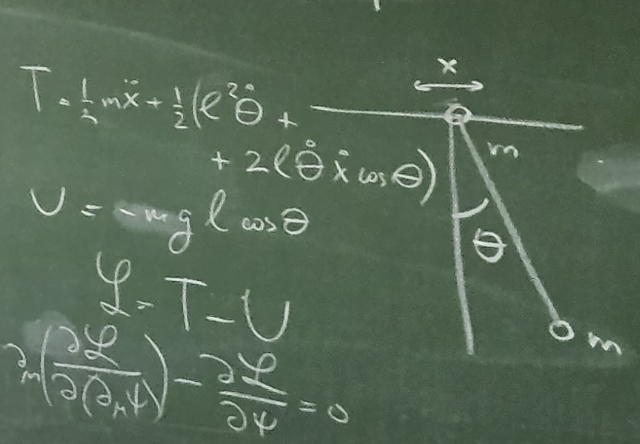 T = ½ mẍ + ½ (l²θ̇ +
+ 2lθ̇ẋ cosθ)
U = -mg l cosθ
ℒ = T - U
∂μ(∂ℒ/∂(∂μψ)) - ∂ℒ/∂ψ = 0
x
m
θ
m